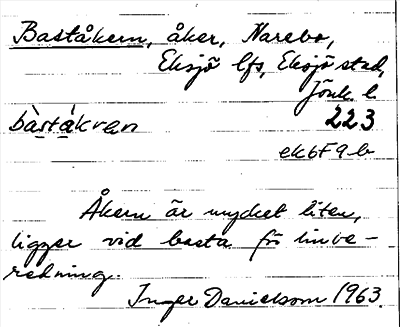 Baståkern, åker, Narebo,
Eksjö lfs, Eksjö stad,
Jönk. l.
bàstákren 223
ek6F9b
Åkern är mycket liten,
ligger vid basta för linbe-
redning.
Inger Danielsson 1963.